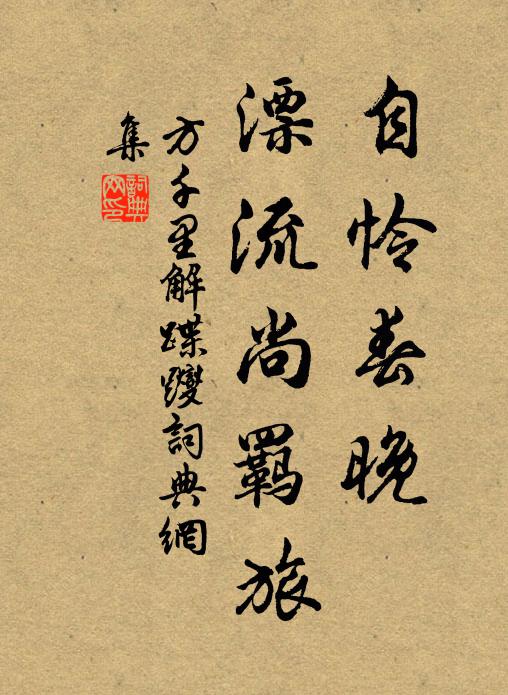 自怜春晚
漂流尚羁旅
方千里解蹀躞詞典網
集
詞典
网印